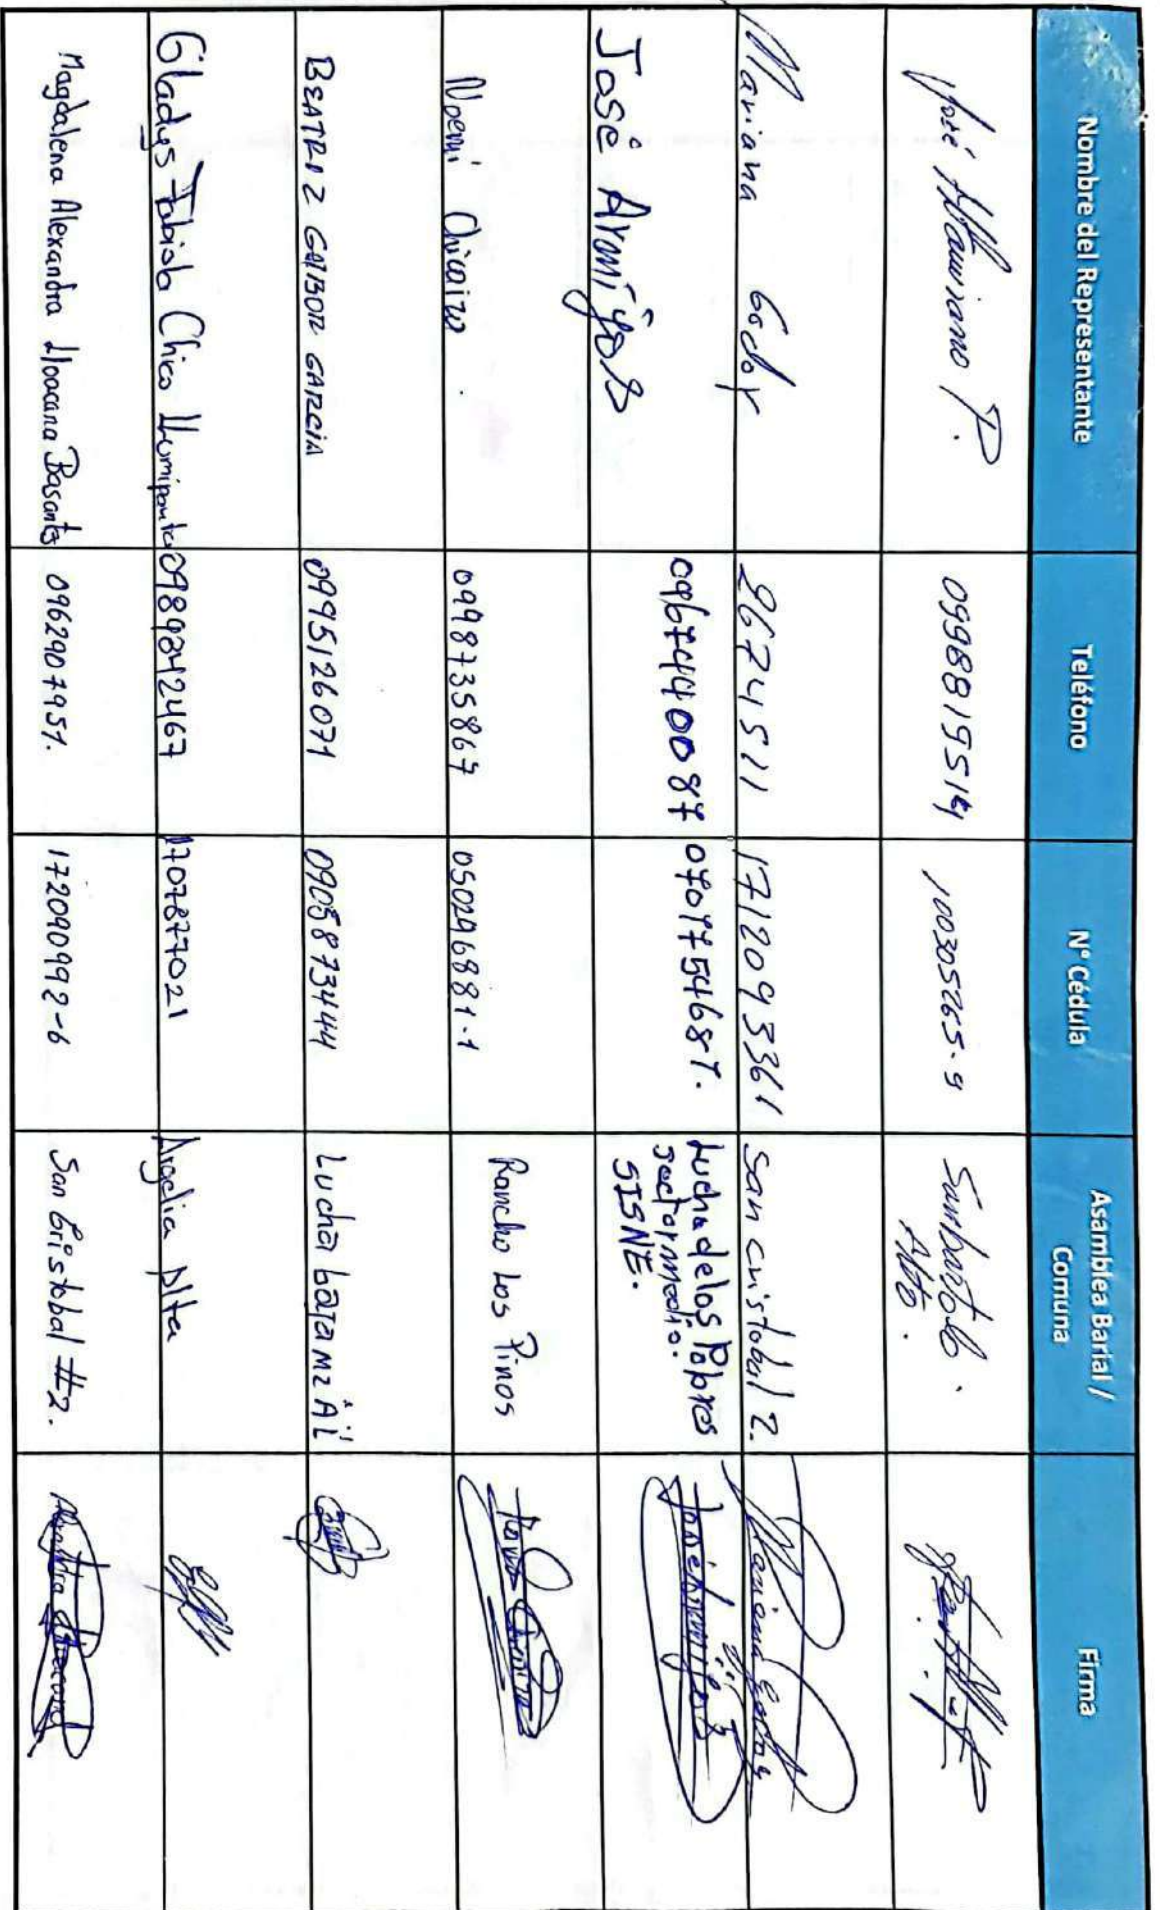 Nombre del Representante Teléfono N° Cédula Asamblea Barial / Comuna Firma
José P. 100305265-9 Sanbartolo Alto.
Mariana Godoy 2674511 1712093361 San cristobal 2. Mariana Godoy
José Armijos 0967440087 Lucha de los Pobres sector medio. SISNE. José Armijos
Noemí Chicaiza 0998735867 050296881-1 Rancho Los Pinos
BEATRIZ GAIBOR GARCIA 0995126071 0905873444 Lucha baja MZ Ä1
Gladys Fabiola Chico Llumiponta 0989842467 1707877021 Argelia Alta
Magdalena Alexandra Lloacana Basantes 0962907957. 172090992-6 San Cristobal #2.